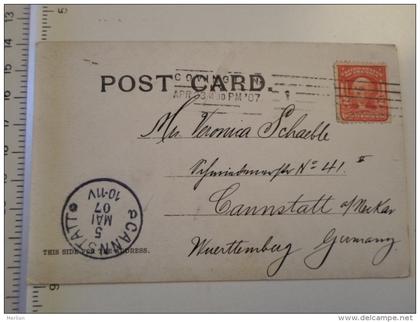 POST CARD.
COVINGTON
APR 23 4 30 PM '07
Mrs Veronica Schaeble
No 41. II
Cannstatt a/Neckar
Wuerttemberg Germany
CANNSTATT
5
MAI
07
10-11V
THIS SIDE FOR THE ADDRESS.